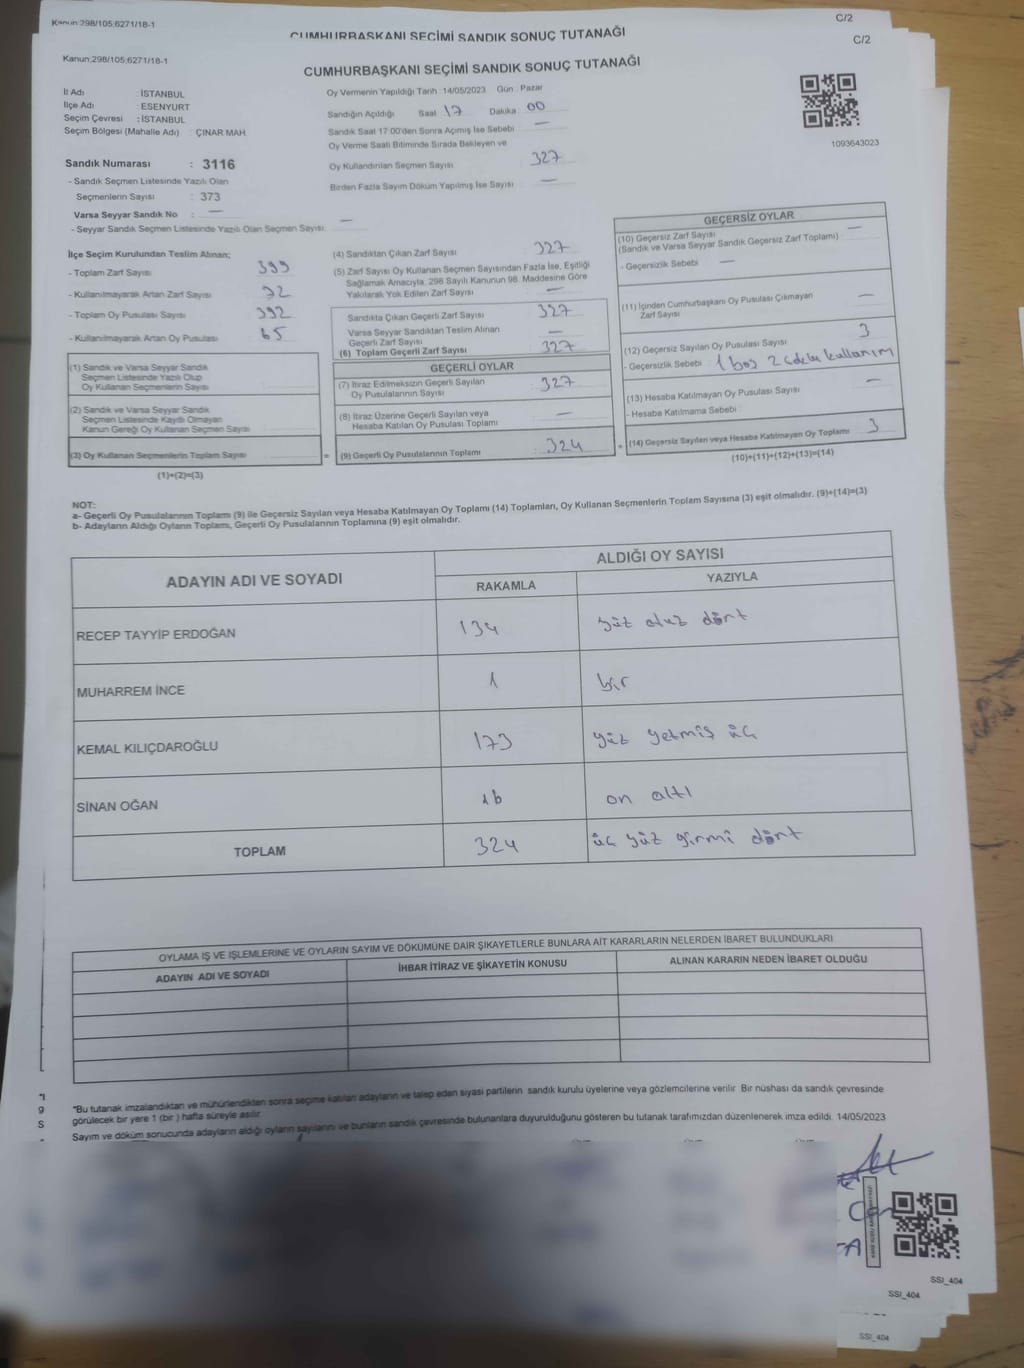 Kanun:298/105;6271/18-1
C/2
CUMHURBAŞKANI SEÇİMİ SANDIK SONUÇ TUTANAĞI
C/2
Kanun;298/105;6271/18-1
CUMHURBAŞKANI SEÇİMİ SANDIK SONUÇ TUTANAĞI
İl Adı : İSTANBUL
İlçe Adı : ESENYURT
Seçim Çevresi : İSTANBUL
Seçim Bölgesi (Mahalle Adı) : ÇINAR MAH.
Sandık Numarası : 3116
- Sandık Seçmen Listesinde Yazılı Olan
Seçmenlerin Sayısı : 373
Varsa Seyyar Sandık No : —
- Seyyar Sandık Seçmen Listesinde Yazılı Olan Seçmen Sayısı: —
Oy Vermenin Yapıldığı Tarih :14/05/2023 Gün : Pazar
Sandığın Açıldığı Saat 17 Dakika : 00
Sandık Saat 17:00'den Sonra Açımış İse Sebebi : —
Oy Verme Saati Bitiminde Sırada Bekleyen ve
Oy Kullandırılan Seçmen Sayısı : 327
Birden Fazla Sayım Döküm Yapılmış İse Sayısı : —
1093643023
İlçe Seçim Kurulundan Teslim Alınan;
- Toplam Zarf Sayısı : 399
- Kullanılmayarak Artan Zarf Sayısı : 72
- Toplam Oy Pusulası Sayısı : 392
- Kullanılmayarak Artan Oy Pusulası : 65
(1) Sandık ve Varsa Seyyar Sandık
Seçmen Listesinde Yazılı Olup
Oy Kullanan Seçmenlerin Sayısı :
(2) Sandık ve Varsa Seyyar Sandık
Seçmen Listesinde Kayıtlı Olmayan
Kanun Gereği Oy Kullanan Seçmen Sayısı :
(3) Oy Kullanan Seçmenlerin Toplam Sayısı :
(1)+(2)=(3)
(4) Sandıktan Çıkan Zarf Sayısı : 327
(5) Zarf Sayısı Oy Kullanan Seçmen Sayısından Fazla İse, Eşitliği
Sağlamak Amacıyla, 298 Sayılı Kanunun 98. Maddesine Göre
Yakılarak Yok Edilen Zarf Sayısı : —
Sandıkta Çıkan Geçerli Zarf Sayısı : 327
Varsa Seyyar Sandıktan Teslim Alınan
Geçerli Zarf Sayısı : —
(6) Toplam Geçerli Zarf Sayısı : 327
GEÇERLİ OYLAR
(7) İtiraz Edilmeksizin Geçerli Sayılan
Oy Pusulalarının Sayısı : 327
(8) İtiraz Üzerine Geçerli Sayılan veya
Hesaba Katılan Oy Pusulası Toplamı : —
= (9) Geçerli Oy Pusulalarının Toplamı : 324
GEÇERSİZ OYLAR
(10) Geçersiz Zarf Sayısı : —
(Sandık ve Varsa Seyyar Sandık Geçersiz Zarf Toplamı)
- Geçersizlik Sebebi : —
(11) İçinden Cumhurbaşkanı Oy Pusulası Çıkmayan
Zarf Sayısı : —
(12) Geçersiz Sayılan Oy Pusulası Sayısı : 3
- Geçersizlik Sebebi : 1 boş 2 kullanım
(13) Hesaba Katılmayan Oy Pusulası Sayısı : —
- Hesaba Katılmama Sebebi :
+ (14) Geçersiz Sayılan veya Hesaba Katılmayan Oy Toplamı : 3
(10)+(11)+(12)+(13)=(14)
NOT:
a- Geçerli Oy Pusulalarının Toplamı (9) ile Geçersiz Sayılan veya Hesaba Katılmayan Oy Toplamı (14) Toplamları, Oy Kullanan Seçmenlerin Toplam Sayısına (3) eşit olmalıdır. (9)+(14)=(3)
b- Adayların Aldığı Oyların Toplamı, Geçerli Oy Pusulalarının Toplamına (9) eşit olmalıdır.
ADAYIN ADI VE SOYADI
ALDIĞI OY SAYISI
RAKAMLA
YAZIYLA
RECEP TAYYİP ERDOĞAN 134 yüz otuz dört
MUHARREM İNCE 1 bir
KEMAL KILIÇDAROĞLU 173 yüz yetmiş üç
SİNAN OĞAN 16 on altı
TOPLAM 324 üç yüz yirmi dört
OYLAMA İŞ VE İŞLEMLERİNE VE OYLARIN SAYIM VE DÖKÜMÜNE DAİR ŞİKAYETLERLE BUNLARA AİT KARARLARIN NELERDEN İBARET BULUNDUKLARI
ADAYIN ADI VE SOYADI
İHBAR İTİRAZ VE ŞİKAYETİN KONUSU
ALINAN KARARIN NEDEN İBARET OLDUĞU
"Bu tutanak imzalandıktan ve mühürlendikten sonra seçime katılan adayların ve talep eden siyasi partilerin sandık kurulu üyelerine veya gözlemcilerine verilir. Bir nüshası da sandık çevresinde
görülecek bir yere 1 (bir ) hafta süreyle asılır.
Sayım ve döküm sonucunda adayların aldığı oyların sayılarını ve bunların sandık çevresinde bulunanlara duyurulduğunu gösteren bu tutanak tarafımızdan düzenlenerek imza edildi. 14/05/2023
SSI_404
SSI_404
SSI_404